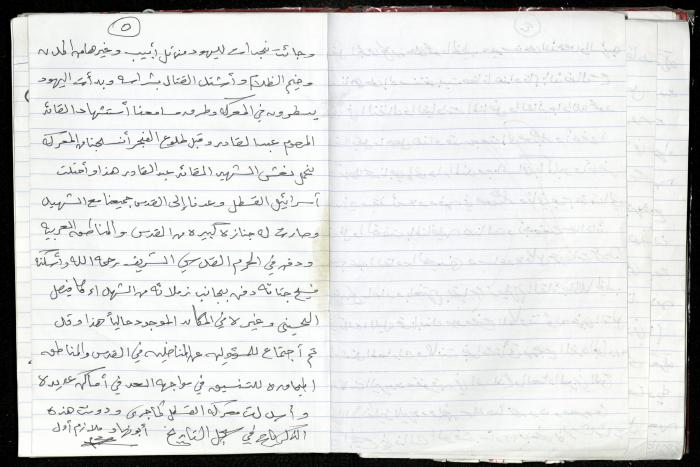 ٥
وجائت نجدات لليهود من تل أبيب وغيرها من المدن
وخيم الظلام وأشتعل القتال بشراسه وبدأت اليهود
يسيطرون في المعركه وطرق مسامعنا أستشهاد القائد
المرحوم عبد القادر وقبل طلوع الفجر أنسحبنا من المعركه
نحمل نعش الشهيد القائد عبد القادر هذا وأحتلت
أسرائيل القسطل وعدنا إلى القدس جميعنا مع الشهيد
وصارت له جنازه كبيره من القدس والمناطق العربيه
ودفن في الحرم القدسي الشريف رحمة الله وأسكنه
فسيح جناته دفن بجانب زملائه من الشهداء كا فيصل
الحسيني وغيره في المكان الموجود حالياً هذا وقد
تم أجتماع للمسؤولين عن المناضلين في القدس والمناطق
المجاوره للتنسيق في مواجهة العدو في أماكن عديدة
وأسدلت معركة القسطل كما جرى ودونت هذه
الذكرى في سجل التاريخ أبو زياد ملازم أول